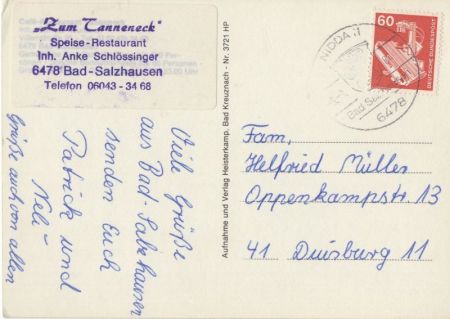 „Zum Tanneneck"
Speise-Restaurant
Inh. Anke Schlössinger
6478 Bad-Salzhausen
Telefon 06043 - 34 68
Viele Grüße
aus Bad-Salzhausen
senden Euch
Patrick und
Neli
Grüße auch von allen
Aufnahme und Verlag Heisterkamp, Bad Kreuznach - Nr. 3721 HP
NIDDA 11
Bad Salzhausen
6478
60
DEUTSCHE BUNDESPOST
Fam,
Helfried Müller
Oppenkampstr 13
41 Duisburg 11